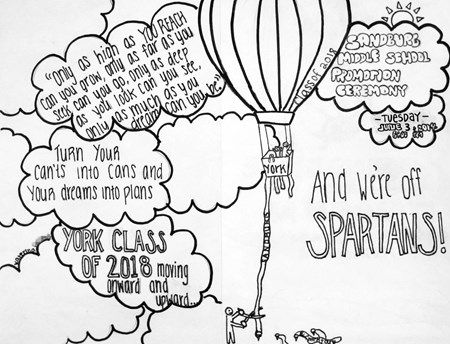 "only as high as YOU REACH
can you grow, only as far as you
seek can you go, only as deep
as you look can you see,
only as much as you
dream can you be."
Turn Your
Can'ts into Cans and
Your dreams into plans
YORK CLASS
OF 2018 moving
onward and
upward...
Class of 2018
York
SANDBURG
MIDDLE SCHOOL
PROMOTION
CEREMONY
-TUESDAY-
JUNE 3, 2014
And we're off
SPARTANS!